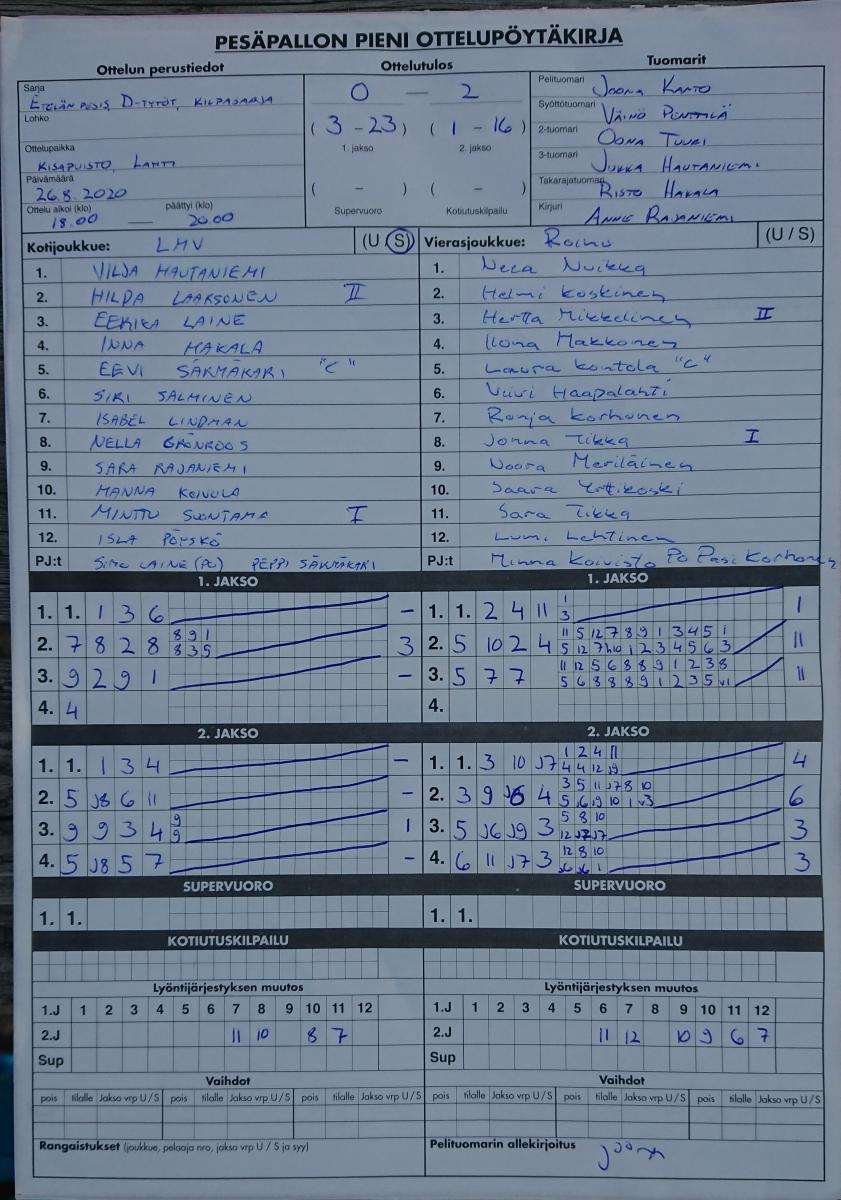 PESÄPALLON PIENI OTTELUPÖYTÄKIRJA
Ottelun perustiedot Ottelutulos Tuomarit
Sarja
ETELÄN PESIS, D-TYTÖT, KILPASARJA
Lohko
Ottelupaikka
KISAPUISTO, LAHTI
Päivämäärä
26.8.2020
Ottelu alkoi (klo) päättyi (klo)
18.00 — 20.00
0 — 2
(3 - 23) (1 - 16)
1. jakso 2. jakso
( - ) ( - )
Supervuoro Kotiutuskilpailu
Pelituomari JOONA KANTO
Syöttötuomari VÄINÖ PENTTILÄ
2-tuomari OONA TUURI
3-tuomari JUKKA HAUTANIEMI
Takarajatuomari RISTO HAKALA
Kirjuri ANNE RAJANIEMI
Kotijoukkue: LMV (U / S)
1. VILJA HAUTANIEMI
2. HILDA LAAKSONEN II
3. EERIKA LAINE
4. INNA HAKALA
5. EEVI SÄKMÄKARI "C"
6. SIRI SALMINEN
7. ISABEL LINDMAN
8. NELLA GRÖNROOS
9. SARA RAJANIEMI
10. MANNA KOIVULA
11. MINTTU SUONTAMA I
12. ISLA PÖYSKÖ
PJ:t SIMO LAINE (PJ) PEPPI SÄKMÄKARI
Vierasjoukkue: Roihu (U / S)
1. Neea Nuikka
2. Helmi Koskinen
3. Hertta Mikkelinen II
4. Ilona Makkonen
5. Laura Kontola "C"
6. Viivi Haapalahti
7. Ronja Korhonen
8. Jonna Tikka I
9. Noora Meriläinen
10. Saara Yrttikoski
11. Sara Tikka
12. Lumi Lehtinen
PJ:t Minna Koivisto PJ Pasi Korhonen
1. JAKSO
1. 1. 1 3 6 –
2. 7 8 2 8 8 9 1 3
8 3 5
3. 9 2 9 1 –
4. 4
2. JAKSO
1. 1. 1 3 4 –
2. 5 J8 6 11 –
3. 9 9 3 4 9 1
9
4. 5 J8 5 7 –
SUPERVUORO
1. 1.
KOTIUTUSKILPAILU
Lyöntijärjestyksen muutos
1.J 1 2 3 4 5 6 7 8 9 10 11 12
2.J 11 10 8 7
Sup
Vaihdot
pois tilalle Jakso vrp U / S pois tilalle Jakso vrp U / S pois tilalle Jakso vrp U / S
Rangaistukset (joukkue, pelaaja nro, jakso vrp U / S ja syy)
1. JAKSO
1. 1. 2 4 11 1 1
3
2. 5 10 2 4 11 5 12 7 8 9 1 3 4 5 1 11
5 12 7 10 1 2 3 4 5 6 3
3. 5 7 7 11 12 5 6 8 8 9 1 2 3 8 11
5 6 8 8 8 9 1 2 3 5
4.
2. JAKSO
1. 1. 3 10 J7 1 2 4 11 4
4 4 12 J9
2. 3 9 J6 4 3 5 11 J7 8 10 6
5 J6 J9 10 1 3
3. 5 J6 J9 3 5 8 10 3
12 J7 J7
4. 6 11 J7 3 12 8 10 3
J6 J6 1
SUPERVUORO
1. 1.
KOTIUTUSKILPAILU
Lyöntijärjestyksen muutos
1.J 1 2 3 4 5 6 7 8 9 10 11 12
2.J 11 12 10 9 6 7
Sup
Vaihdot
pois tilalle Jakso vrp U / S pois tilalle Jakso vrp U / S pois tilalle Jakso vrp U / S
Pelituomarin allekirjoitus